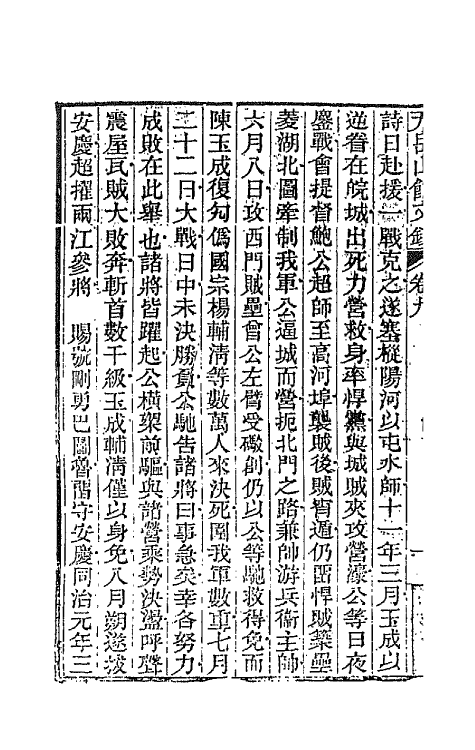 詩曰赴援一戰克之遂塞樅陽河以屯水師十一年三月玉成以
逆眷在皖城出死力營救身率悍黨與城賊夾攻營濠公等日夜
鏖戰會提督鮑公超師至高河埠襲賊後賊宵遁仍留悍賊築壘
菱湖北圖牽制我軍公逼城而營扼北門之路兼帥游兵衞主帥
六月八日攻西門賊壘曾公左臂受礮創仍以公等馳救得免而
陳玉成復句僞國宗楊輔淸等數萬人來決死圍我軍數重七月
二十二日大戰日中未決勝負公馳告諸將曰事急矣幸各努力
成敗在此舉也諸將皆躍起公橫槊前驅與諸營乘勢決盪呼聲
震屋瓦賊大敗奔斬首數千級玉成輔淸僅以身免八月朔遂拔
安慶超擢兩江參將 賜號剛勇巴圖魯偕守安慶同治元年三